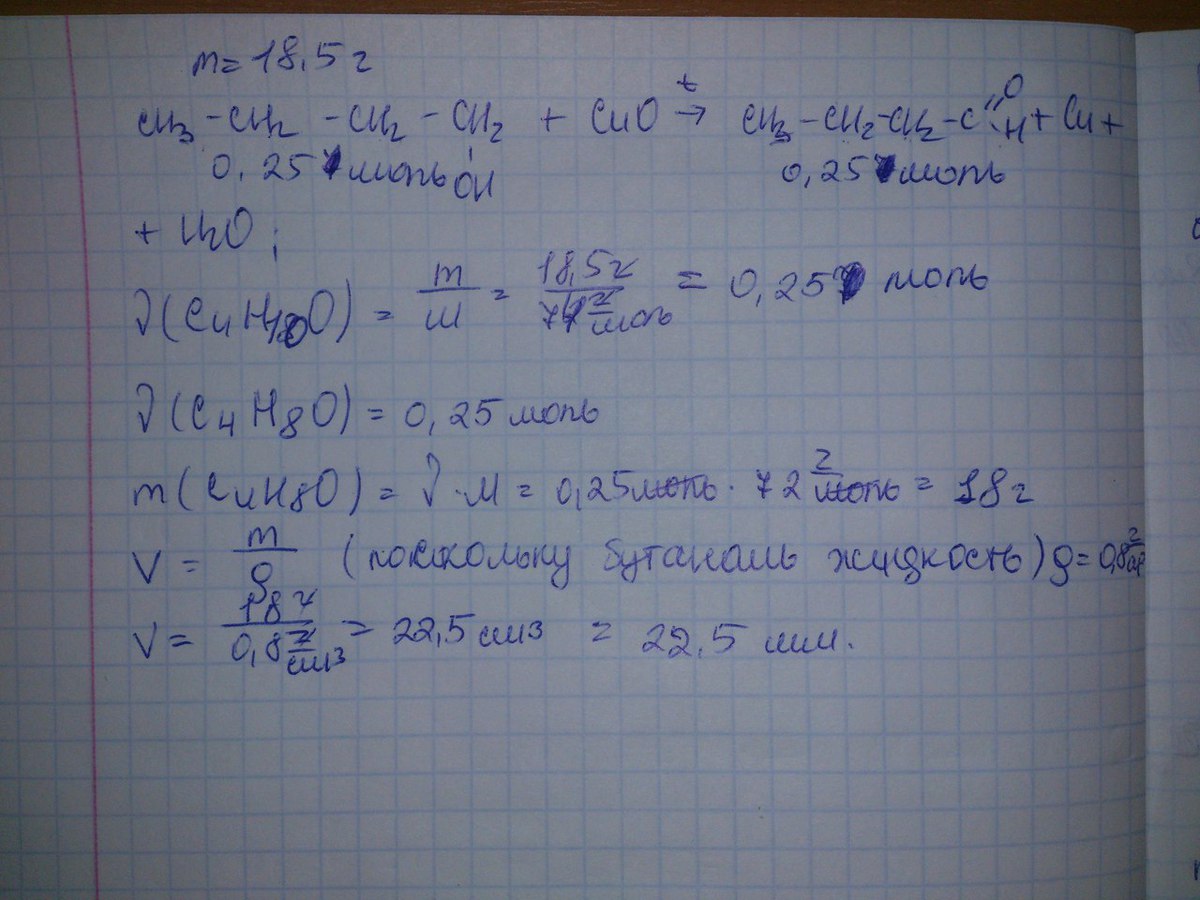 m = 18,5 г
CH3 - CH2 - CH2 - CH2 + CuO t→ CH3 - CH2 - CH2 - C =O -H + Cu +
0,25 моль OH 0,25 моль
+ H2O ;
ν(C4H10O) = m/M = 18,5г/74 г/моль = 0,25 моль
ν(C4H8O) = 0,25 моль
m(C4H8O) = ν · M = 0,25 моль · 72 г/моль = 18 г
V = m/ρ (поскольку бутаналь жидкость) ρ = 0,8 г/см3
V = 18 г/0,8 г/см3 = 22,5 см3 = 22,5 мл.